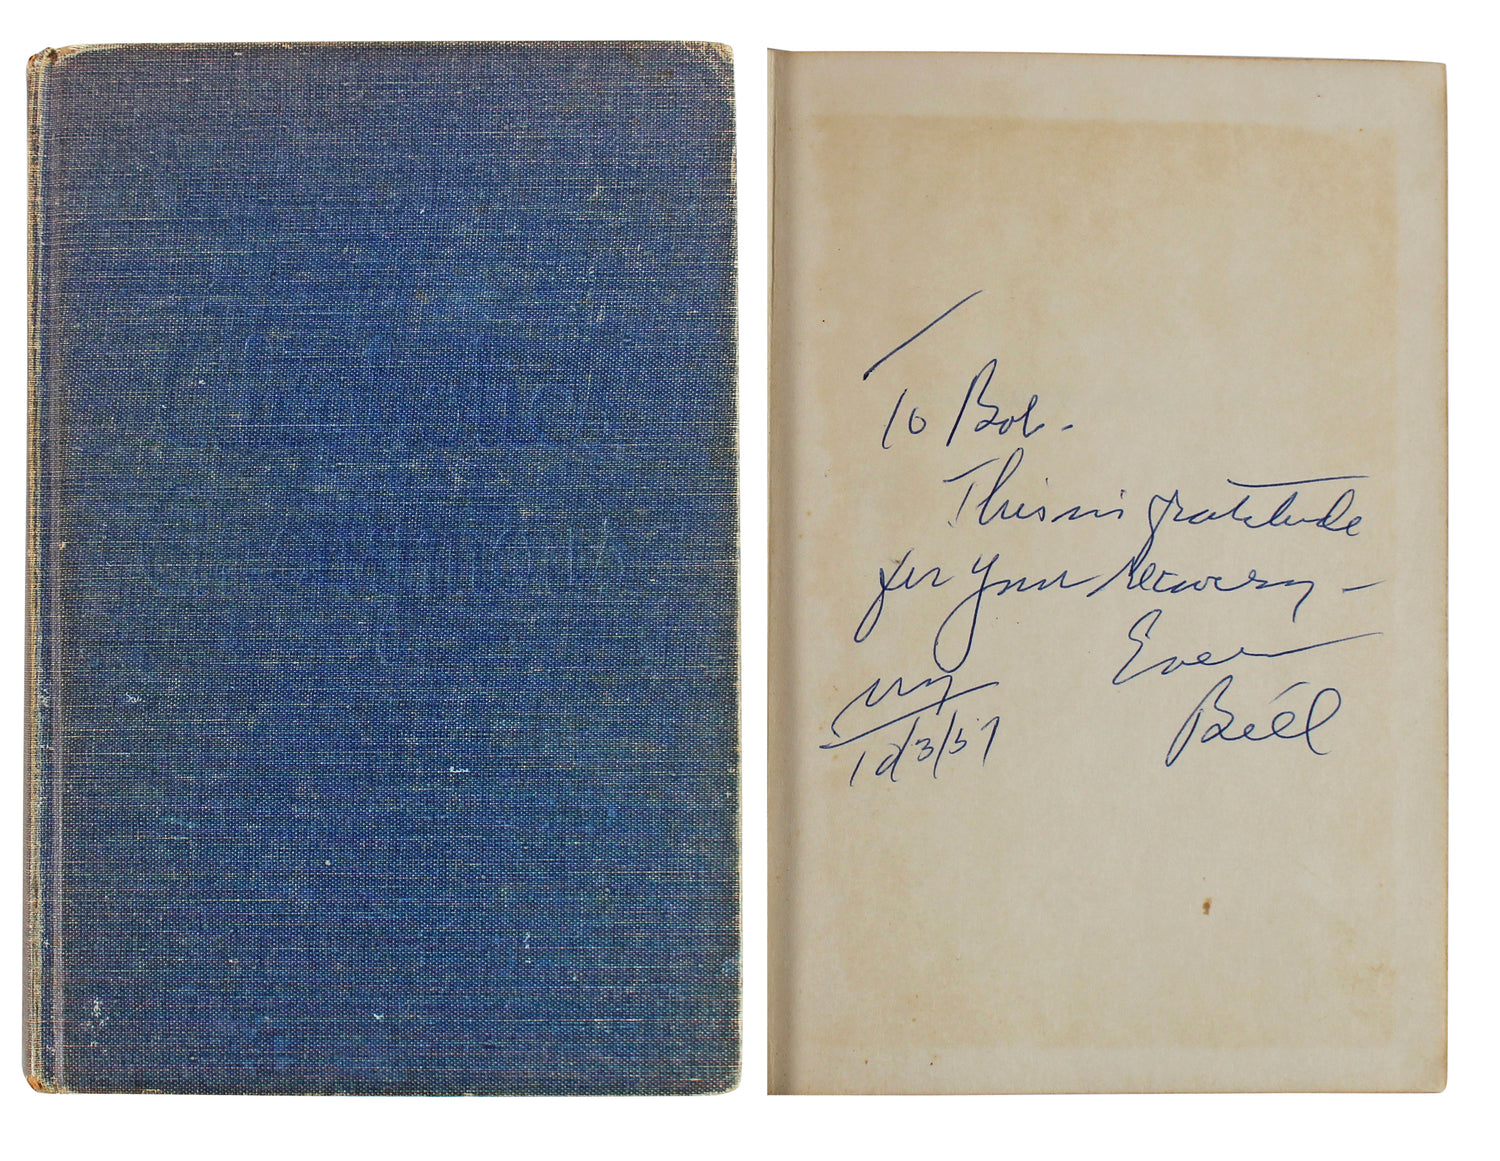 To Bob -
This in gratitude
for your recovery -
Ever
Bill
NY
10/3/57